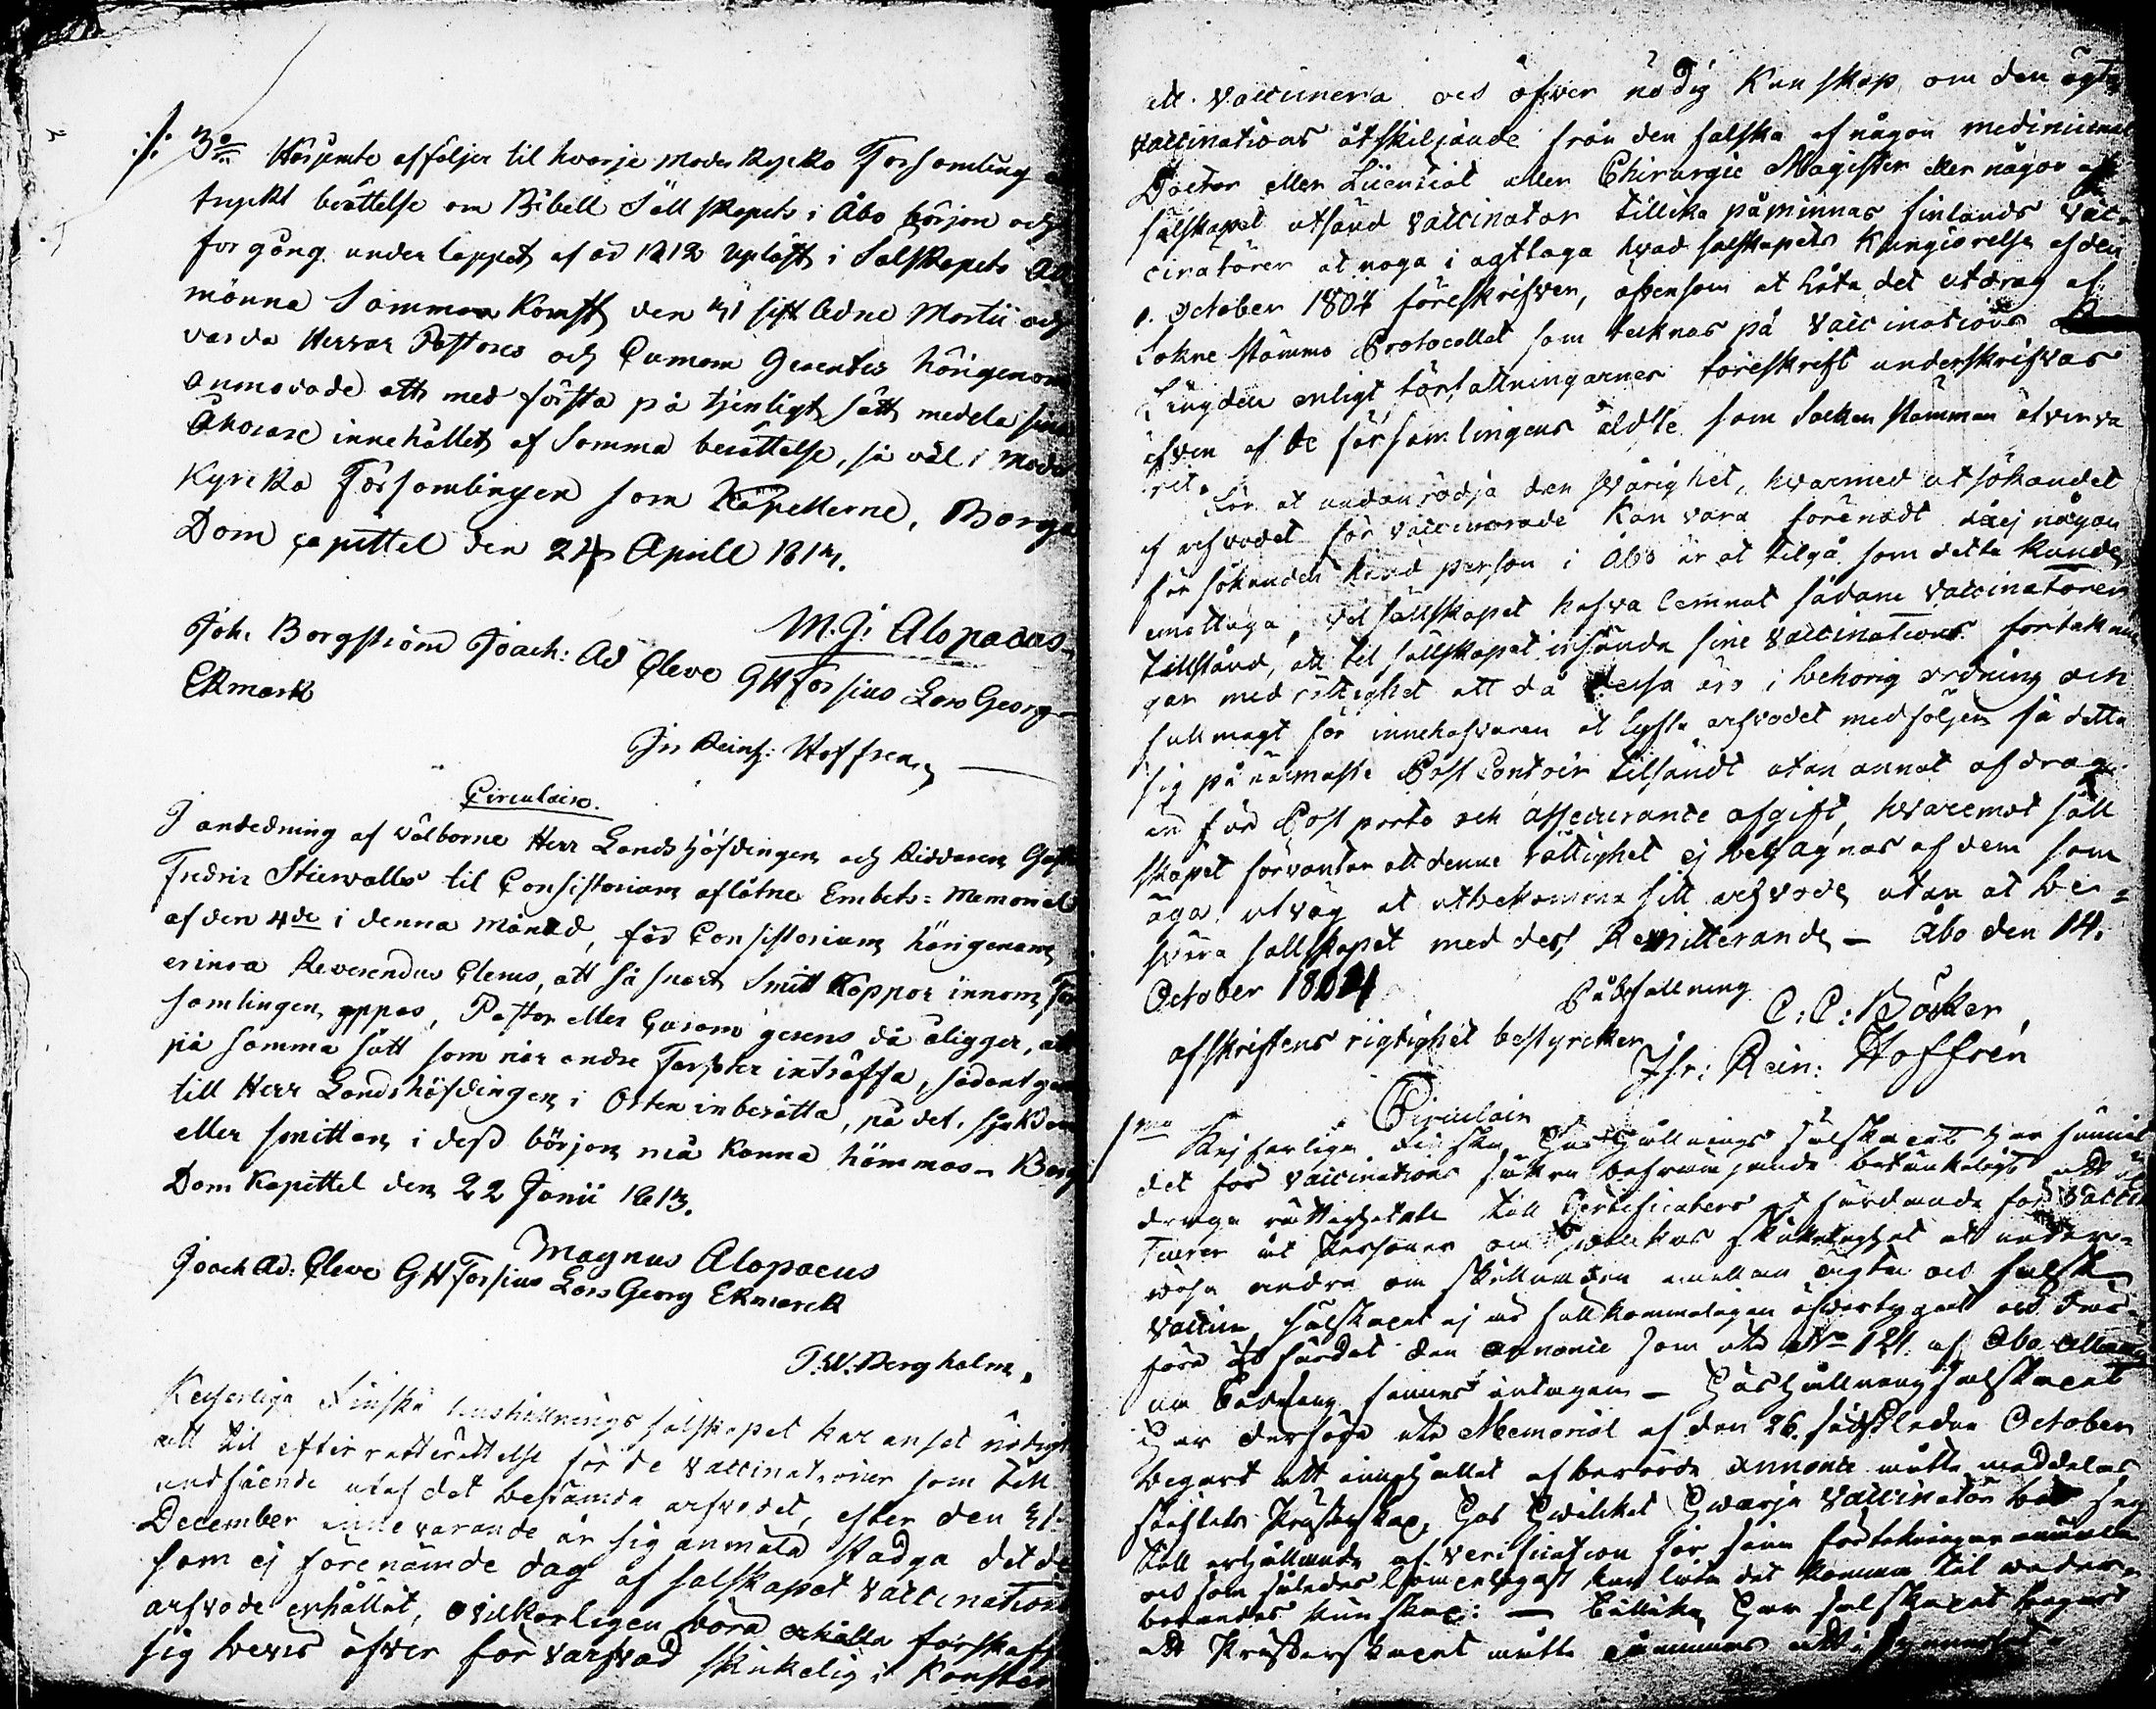 ·/. 3o Härjemte afföljer til hvarje Moder Kyrcko Församling
tryckt berättelse om Bibell Sällskapets i Åbo början och
forgång under loppet af år 1812 upläst i Sälskapets All
männa Sammankomst den 31 sistledne Martii och
varda Herrar Pastores och Curam Gerentes härigenom
anmodade att med första på tjenligt sätt meddela sina
Åhörare innehållet af Samma berättelse, så väl i Moder
Kyrcko Församlingen som Kapellerne, Borgå
Dom capittel den 24 Aprill 1813.
M. J. Alopæus
Joh. Borgström Joach: Ad Cleve G H Forsius Lars Georg
Ekmark
Jn Reinh: Hoffren,
Circulair.
I anledning af Välborne Herr Landshöfdingen och Riddaren Gust
Fredric Stiernvalls til Consistorium aflåtne Embets-Memorial
af den 4de i denna Månad, får Consistorium härigenom
erinra Reverendus Clerus, att så snart Smitt Koppor innom För
samlingen yppas, Pastor eller Curam gerens då åligger, att
på samma sätt som når andre Farsoter inträffa, sådant genast
till Herr Landshöfdingen i Orten inberätta, på det sjukdomen
eller smittan i dess början må kunna hämmas. Borgå
Dom Kapittel den 22 Junii 1813.
Magnus Alopæus
Joach Ad: Cleve G H Forsius Lars Georg Ekmarck
T. W. Bergholm,
Kejserliga Finska hushållnings sälskapet har ansedt nödigt
att til efterrättelse för de Vaccinatorier som till
undfående utaf det bestämda arfvodet, efter den 31
December innevarande år sig anmäla stadga det de
som ej förenämde dag af sälskapet Vaccinations
arfvode erhållit, ovilkorligen böra erhålla förskaff
sig bevis öfver förvärfvad skickelig i Konsten
att Vaccinera och öfver nödig Kunskap om den ägta
Vaccinations åtskiljande från den falska af någon medicinæ
Doctor eller Licentiat eller Chirurgie Magister eller någor af
sälskapet utsänd Vaccinator tillika påminnas Finlands Vac-
cinatörer at noga i agttaga hvad sälskapets Kungiörelse af den
1. October 1804 föreskrifver, äfvensom at låta det utdrag af
Sokne stämmo Protocollet som tecknas på Vaccinations
Längden enligt författningarnes föreskrift underskrifvas
äfven af de församlingens äldste som Socken stämman öfverva
rit.
För at undanrödja den svårighet, hvarmed utsökandet
af arfvodet för Vaccinerade Kan vara förenadt då ej någon
för sökanden känd person i Åbo är at tilgå som detta kunde
emottaga, vil sällskapet hafva lemnat sådane Vaccinatörer
tillstånd, att til sällskapet insända sine Vaccinations förteknin
gar med rättighet att då dessa äro i behörig ordning och
fullmagt för innehafvaren at lyfta arfvodet medföljer få detta
sig på närmaste Post Contoir tilsändt utan annat afdrag
än för Post porto och Assecurance afgift, hvaremot säll
skapet förväntar att denne rättighet ej begagnas af dem som
äga utväg at utbekomma sitt arfvode utan at be-
svära sällskapet med dess Remitterande – Åbo den 14.
October 1804
På befallning
C: C: Böcker
afskriftens riktighet bestyrcker
Jhr: Rein: Hoffrén
Circulair
1mo Kejserliga Finska Hushållnings sälskapet har funnit
det för Vaccinations säkra befrämjande betänkeligt att
draga rättighet till Certificaters utfärdande för Vaccina
teurer åt Personer om hvilkas skickelighet at under-
visa andre om skillnaden emellan ägta och falsk
Vaccin sälskapet ej är fullkommeligen öfvertygadt och der-
före utfärdat den annonce som uti No 121. af Åbo Allmänna
Tidning finnes intagen – Hushållnings sälskapet
har derföre uti Memorial af den 26. sidstledne October
begärt att innehållet af berörde annonce måtte meddelas
stiftets Prästerskap, hos hvilket hvarje Vaccinatör bör sig
till erhållande af verification för sine förtekningar anmäla
och som således lämpeligast kan låta det komma til veder-
börandes kunskap: – Tillika har sälskapet begärt
att Presterskapet måtte påminnas att i synnerhet